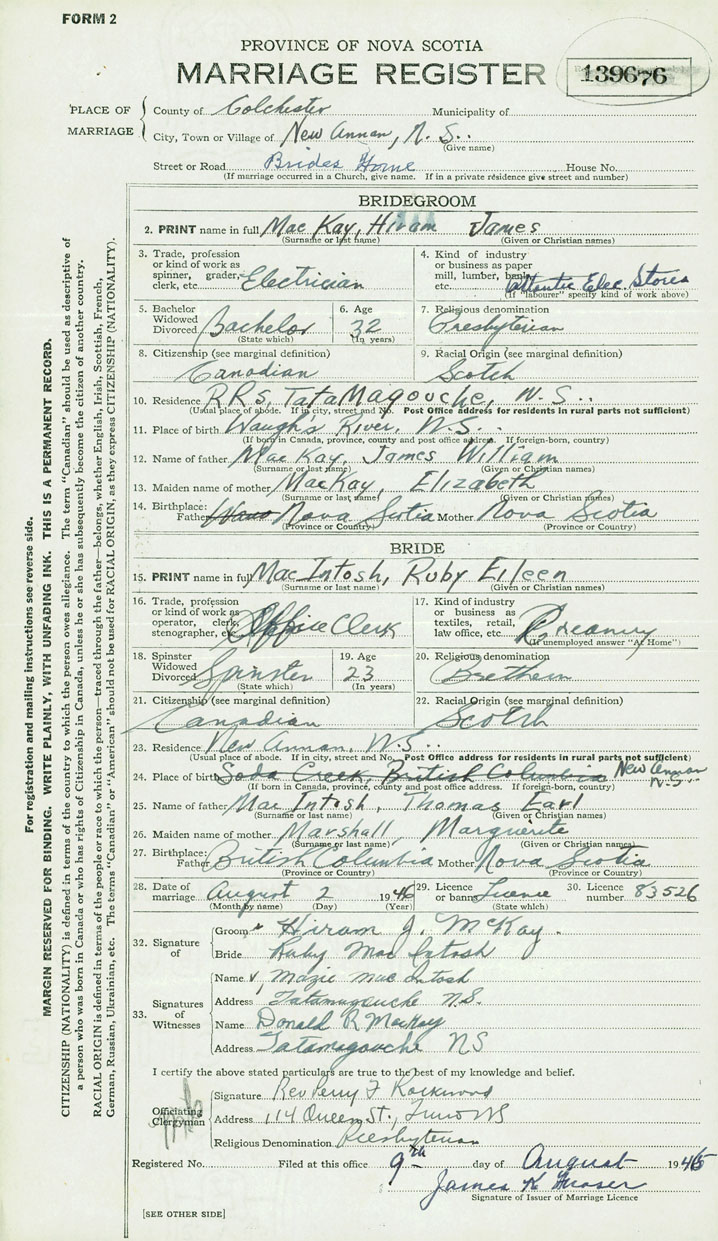 FORM 2
PROVINCE OF NOVA SCOTIA
MARRIAGE REGISTER
139676
PLACE OF MARRIAGE
County of Colchester Municipality of
City, Town or Village of New Annan, N.S.
(Give name)
Street or Road Brides Home House No.
(If marriage occurred in a Church, give name. If in a private residence give street and number)
BRIDEGROOM
2. PRINT name in full Mac Kay, Hiram James
(Surname or last name) (Given or Christian names)
3. Trade, profession or kind of work as spinner, grader, clerk, etc. Electrician
4. Kind of industry or business as paper mill, lumber, bank, etc. Atlantic Elec Stores
(If "labourer" specify kind of work above)
5. Bachelor Widowed Divorced Bachelor
(State which)
6. Age 32
(In years)
7. Religious denomination Presbyterian
8. Citizenship (see marginal definition) Canadian
9. Racial Origin (see marginal definition) Scotch
10. Residence RRs, TataMagouche, N.S.
(Usual place of abode. If in city, street and No. Post Office address for residents in rural parts not sufficient)
11. Place of birth Waugh's River, N.S.
(If born in Canada, province, county and post office address. If foreign-born, country)
12. Name of father MacKay, James William
(Surname or last name) (Given or Christian names)
13. Maiden name of mother MacKay, Elizabeth
(Surname or last name) (Given or Christian names)
14. Birthplace: Father Nova Scotia Mother Nova Scotia
(Province or Country) (Province or Country)
BRIDE
15. PRINT name in full Mac Intosh, Ruby Eileen
(Surname or last name) (Given or Christian names)
16. Trade, profession or kind of work as operator, clerk, stenographer, etc. Office Clerk
17. Kind of industry or business as textiles, retail, law office, etc.
(If unemployed answer "At Home")
18. Spinster Widowed Divorced Spinster
(State which)
19. Age 23
(In years)
20. Religious denomination Brethern
21. Citizenship (see marginal definition) Canadian
22. Racial Origin (see marginal definition) Scotch
23. Residence New Annan, N.S.
(Usual place of abode. If in city, street and No. Post Office address for residents in rural parts not sufficient)
24. Place of birth Soda Creek, British Columbia New Annan N.S.
(If born in Canada, province, county and post office address. If foreign-born, country)
25. Name of father Mac Intosh, Thomas Earl
(Surname or last name) (Given or Christian names)
26. Maiden name of mother Marshall, Marguerite
(Surname or last name) (Given or Christian names)
27. Birthplace: Father British Columbia Mother Nova Scotia
(Province or Country) (Province or Country)
28. Date of marriage August 2 1946
(Month by name) (Day) (Year)
29. Licence or banns Licence
(State which)
30. Licence number 83526
32. Signature of
Groom Hiram J. McKay.
Bride Ruby Mac Intosh
33. Signatures of Witnesses
Name Mazie MacIntosh
Address Tatamagouche N.S.
Name Donald R MacKay
Address Tatamagouche NS
I certify the above stated particulars are true to the best of my knowledge and belief.
Officiating Clergyman
Signature Rev Perry F Rockwood
Address 114 Queen St., Truro NS
Religious Denomination Presbyterian
Registered No. Filed at this office 9th day of August 1946
James K Fraser
Signature of Issuer of Marriage Licence
[SEE OTHER SIDE]
For registration and mailing instructions see reverse side.
MARGIN RESERVED FOR BINDING. WRITE PLAINLY, WITH UNFADING INK. THIS IS A PERMANENT RECORD.
CITIZENSHIP (NATIONALITY) is defined in terms of the country to which the person owes allegiance. The term "Canadian" should be used as descriptive of
a person who was born in Canada or who has rights of Citizenship in Canada, unless he or she has subsequently become the citizen of another country.
RACIAL ORIGIN is defined in terms of the people or race to which the person—traced through the father—belongs, whether English, Irish, Scottish, French,
German, Russian, Ukrainian, etc. The terms "Canadian" or "American" should not be used for RACIAL ORIGIN, as they express CITIZENSHIP (NATIONALITY).